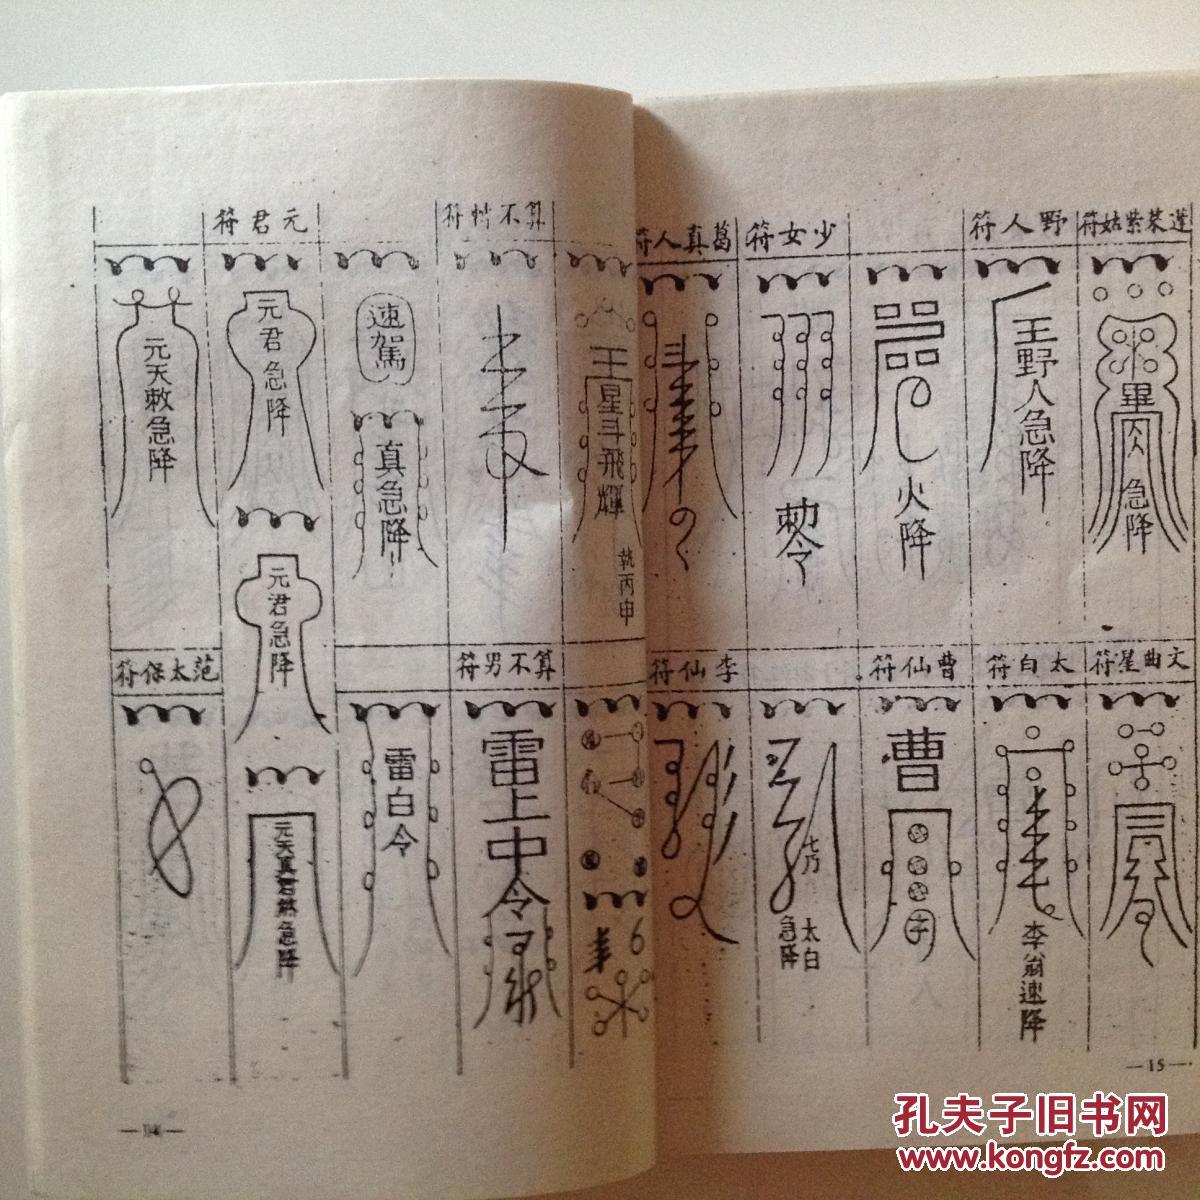 蓬萊紫姑符
畢
急降
野人符
王野人急降
火降
少女符
勅令
葛真人符
王
星斗飛輝
執丙申
速駕
真急降
元君符
元君急降
元君急降
元天真君敕急降
元天敕急降
文曲星符
太白符
李翁速降
曹仙符
曹
太白
急降
李仙符
算不男符
雷上中令
雷白令
范太保符
—15—
孔夫子旧书网
www.kongfz.com